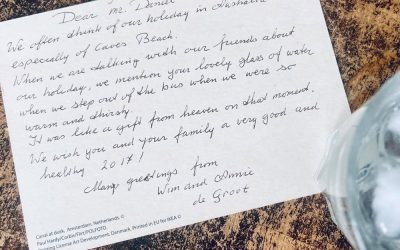 Dear Mr. Daniel
We often think of our holiday in Australia
especially of Caves Beach.
When we are talking with our friends about
our holiday, we mention your lovely glass of water
when we step out of the bus when we were so
warm and thirsty.
It was like a gift from heaven on that moment.
We wish you and your family a very good and
healthy 2017!
Many greetings from
Wim and Annie
de Groot
Canal at dusk, Amsterdam, Netherlands. ©
Paul Hardy/Corbis/Flirt/POLFOTO.
Licensing License Art Development, Denmark. Printed in EU for IKEA ©